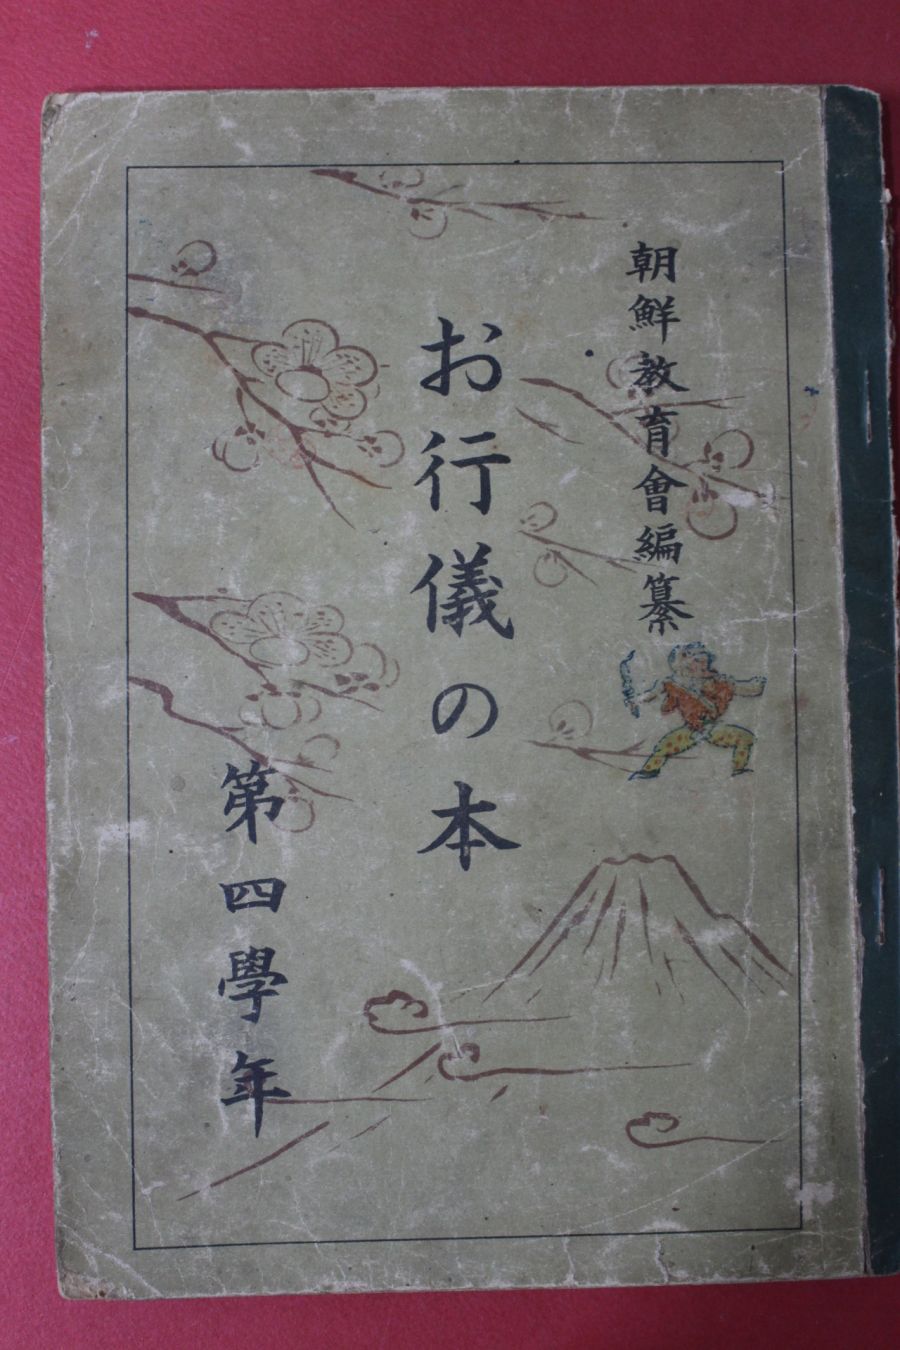 朝鮮教育會編纂
お行儀の本
第四學年